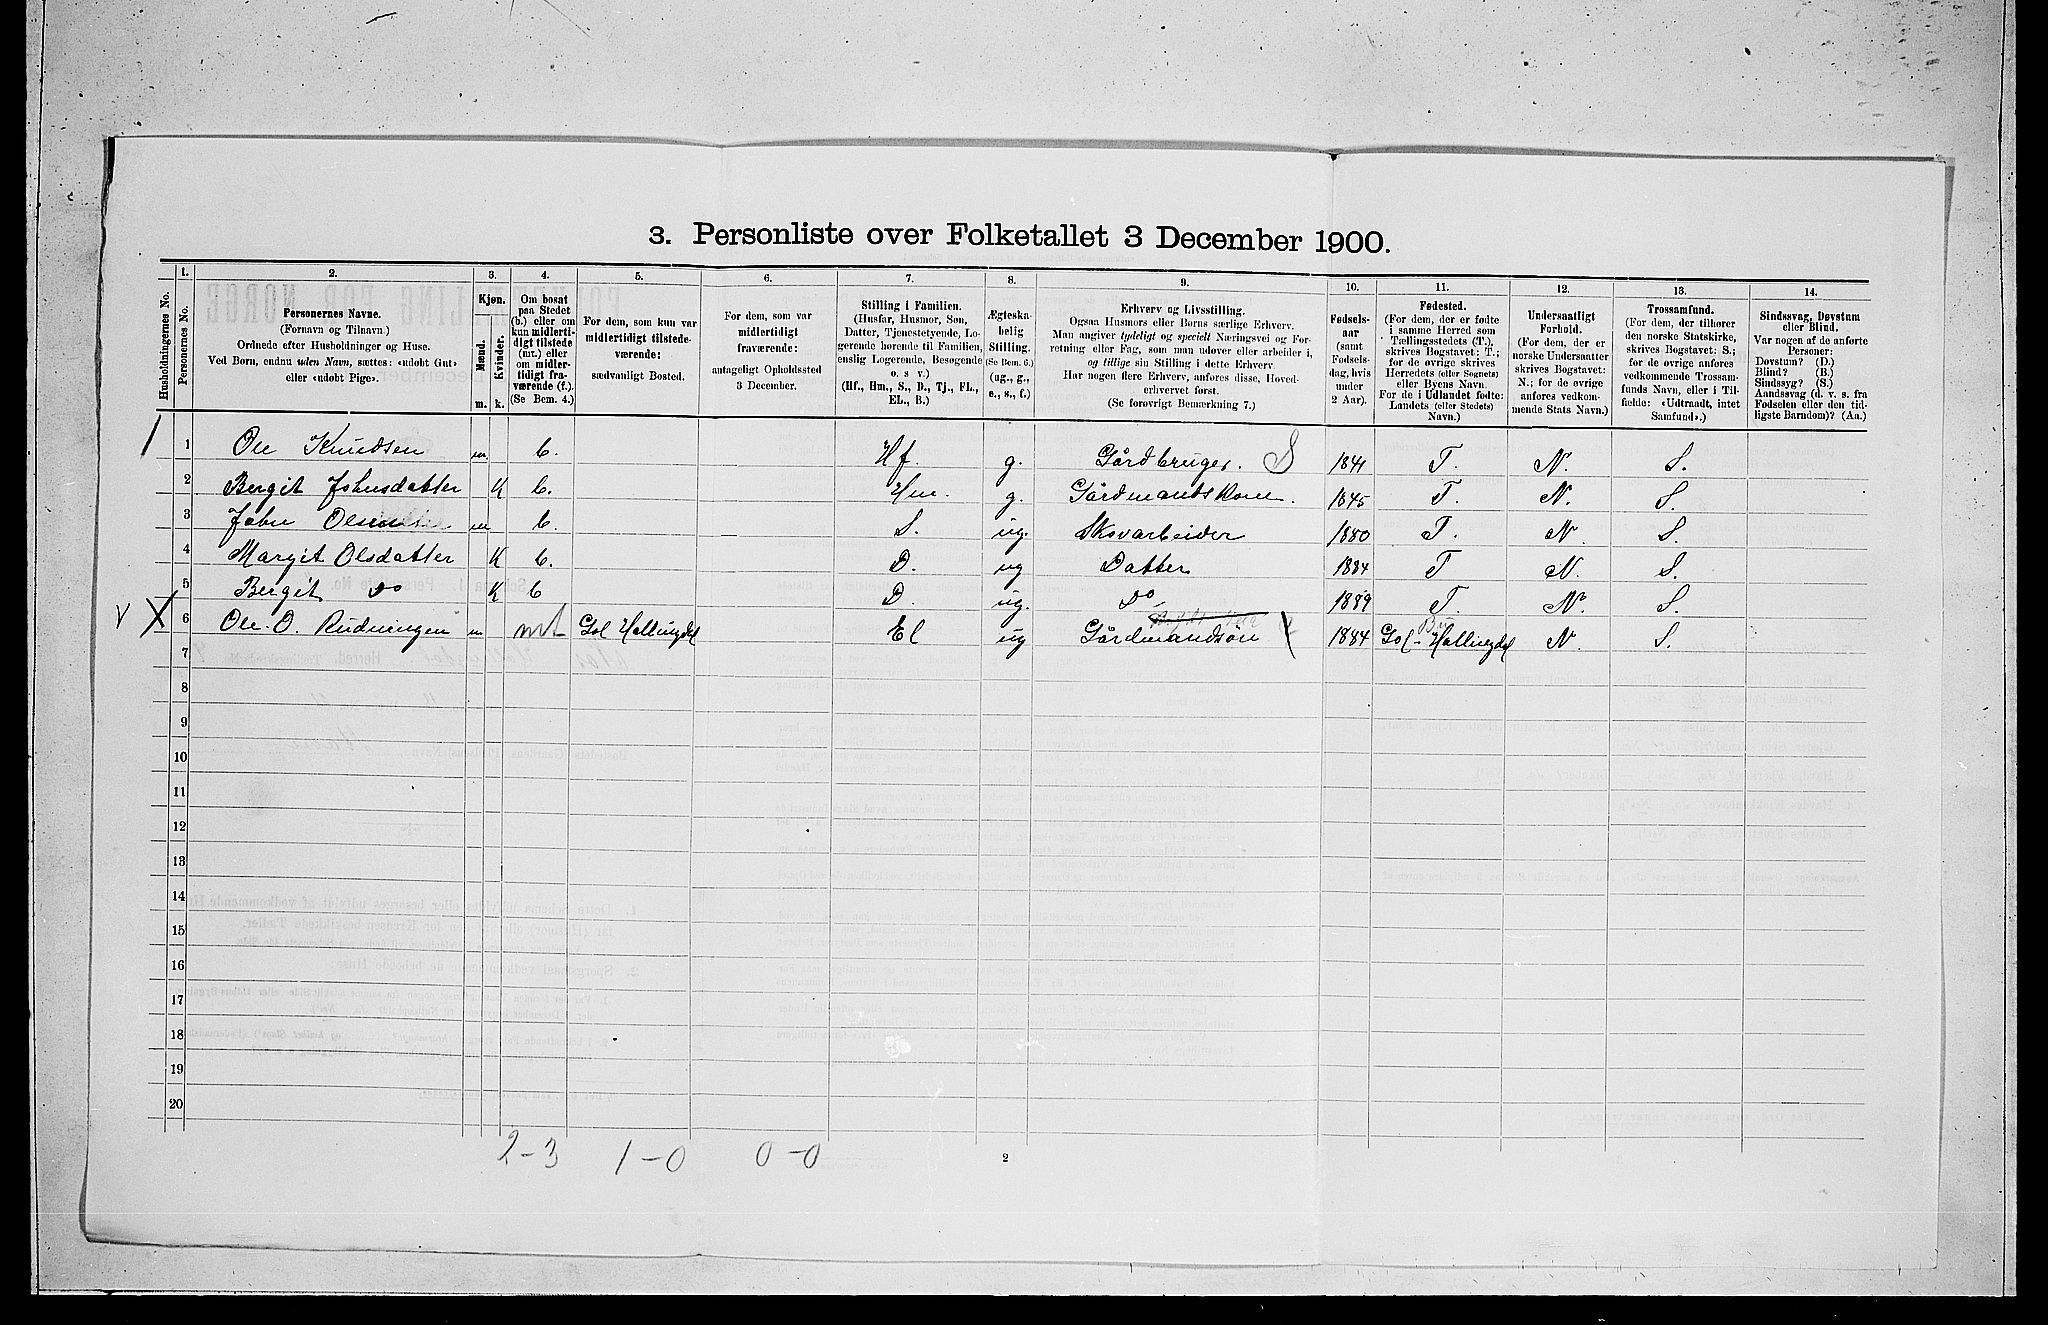 3. Personliste over Folketallet 3 December 1900.
Husholdningernes No.
1. Personernes No.
2. Personernes Navne.
(Fornavn og Tilnavn.)
Ordnede efter Husholdninger og Huse.
Ved Børn, endnu uden Navn, sættes: «udøbt Gut»
eller «udøbt Pige».
3. Kjøn.
Mænd. Kvinder.
m. k.
4. Om bosat
paa Stedet
(b.) eller om
kun midlerti-
digt tilstede
(mt.) eller
om midler-
tidigt fra-
værende (f.).
(Se Bem. 4.)
5. For dem, som kun var
midlertidigt tilstede-
værende:
sædvanligt Bosted.
6. For dem, som var
midlertidigt
fraværende:
antageligt Opholdssted
3 December.
7. Stilling i Familien.
(Husfar, Husmor, Søn,
Datter, Tjenestetyende, Lo-
gerende hørende til Familien,
enslig Logerende, Besøgende
o. s v.)
(Hf., Hm., S., D., Tj., FL.,
EL., B.)
8. Ægteska-
belig
Stilling.
(Se Bem. 6.)
(ug., g.,
e., s., f.)
9. Erhverv og Livsstilling.
Ogsaa Husmors eller Børns særlige Erhverv.
Man angiver tydeligt og specielt Næringsvei og For-
retning eller Fag, som man udøver eller arbeider i,
og tillige sin Stilling i dette Erhverv.
Har nogen flere Erhverv, anføres disse, Hoved-
erhvervet først.
(Se forøvrigt Bemærkning 7.)
10. Fødsels-
aar
(samt
Fødsels-
dag, hvis
under
2 Aar).
11. Fødested.
(For dem, der er fødte
i samme Herred som
Tællingsstedets (T.),
skrives Bogstavet: T.;
for de øvrige skrives
Herredets (eller Sognets)
eller Byens Navn.
For de i Udlandet fødte:
Landets (eller Stedets)
Navn.)
12. Undersaatligt
Forhold.
(For dem, der er
norske Undersaatter
skrives Bogstavet:
N.; for de øvrige
anføres vedkom-
mende Stats Navn.)
13. Trossamfund.
(For dem, der tilhører
den norske Statskirke,
skrives Bogstavet: S.;
for de øvrige anføres
vedkommende Trossam-
funds Navn, eller i Til-
fælde: «Udtraadt, intet
Samfund».)
14. Sindssvag, Døvstum
eller Blind.
Var nogen af de anførte
Personer:
Døvstum? (D.)
Blind? (B.)
Sindssyg? (S.)
Aandssvag (d. v. s. fra
Fødselen eller den tid-
ligste Barndom)? (Aa.)
1 Ole Knudsen m. b. Hf. g. Gårdbruger. S 1841 T. N. S.
2 Bergit Johnsdatter K b. Hm. g. Gårdmandskone. 1845 T. N. S.
3 John Olsen m b. S. ug. Skovarbeider 1880 T. N. S.
4 Margit Olsdatter K b. D. ug Datter 1884 T N. S.
5 Bergit Do K b D. ug. Do 1889 T. N. S.
V X 6 Ole O. Rudningen m mt Gol Hallingdal El ug Gårdmandsøn 1884 Gol-Hallingdal N. S.
7
8
9
10
11
12
13
14
15
16
17
18
19
20
2-3 1-0 0-0
2